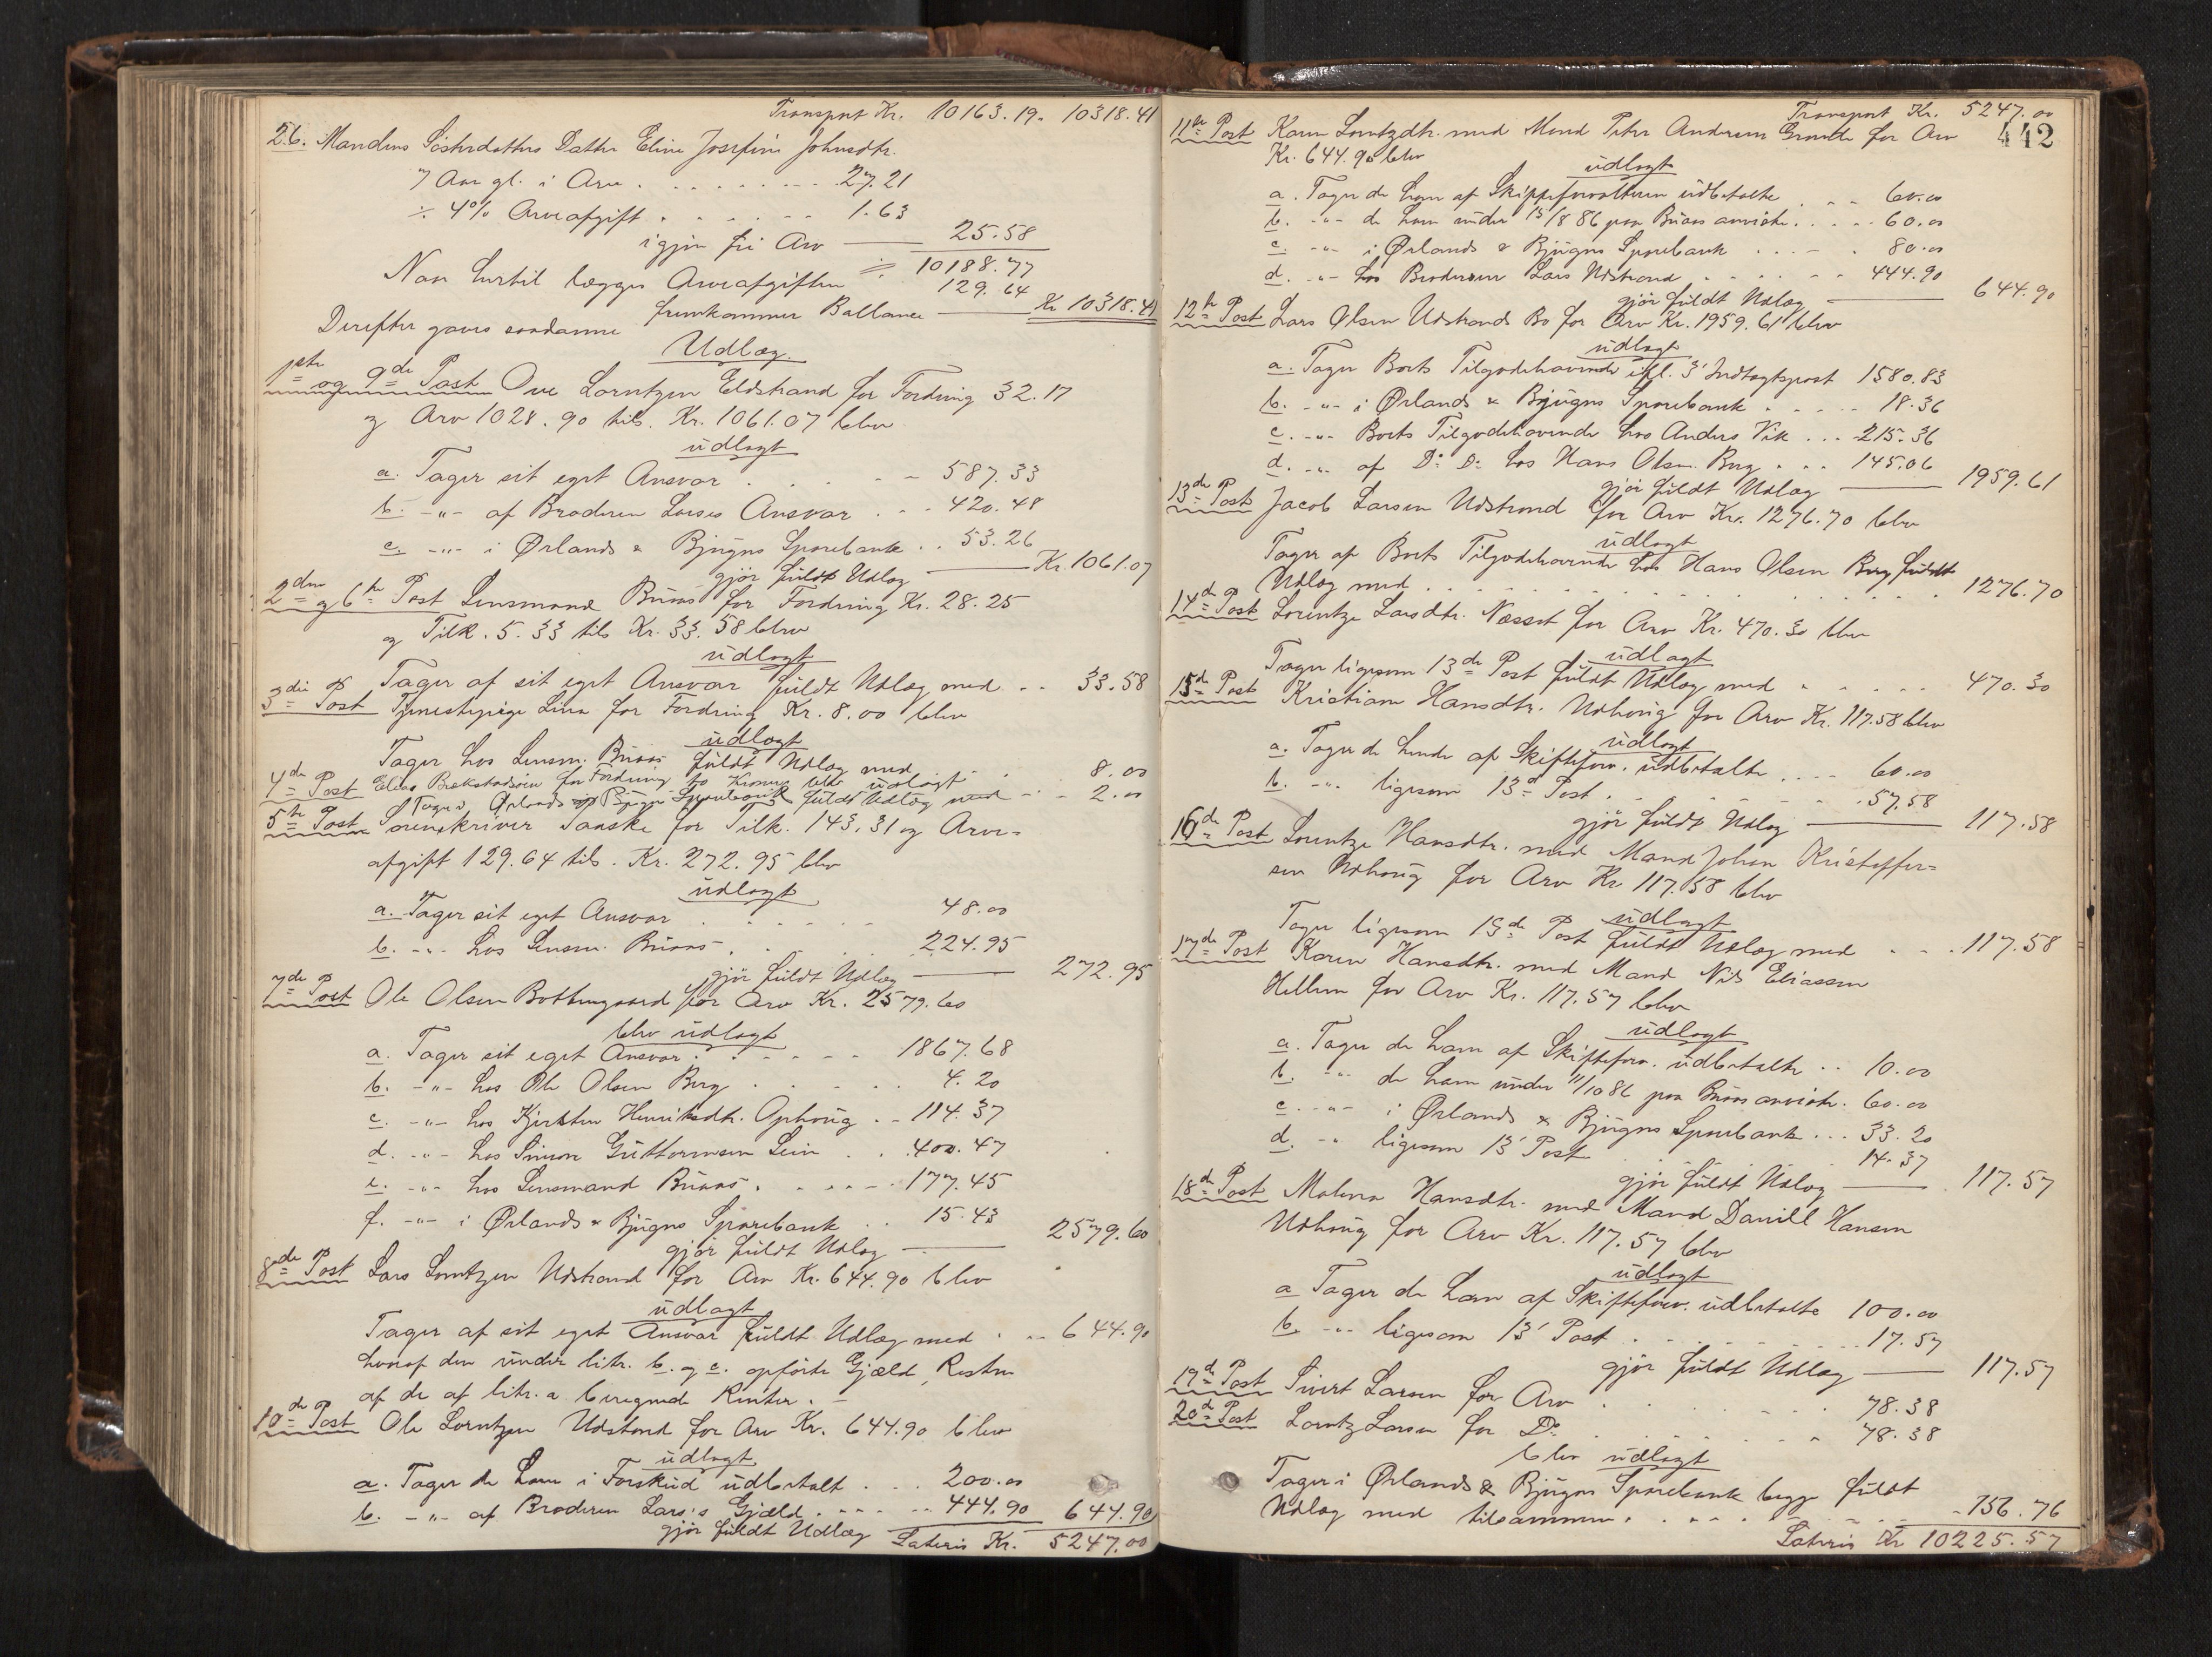 Transport Kr. 10163.19. 10318.41
26. Mandens Søsterdatters Datter Eline Josefine Johnsdtr.
7 Aar gl. i Arv . . . . . . . . 27.21
÷ 4% Arveafgift . . . . . . 1.63
igjen fri Arv 25.58
10188.77
Naar hertil lægges Arveafgiften 129.64
fremkommer Ballance Kr 10318.41
Derefter gaves saadanne
Udlæg.
1ste og 9de Post Ove Lorntzen Eldstrand for Fordring 32.17
og Arv 1028.90 tils. Kr. 1061.07 blev
udlagt
a. Tager sit eget Ansvar . . . . 587.33
b. -"- af Broderen Larses Ansvar . . . 420.48
c. -"- i Ørlands & Bjugns Sparebank . . 53.26
gjør fuldt Udlæg Kr. 1061.07
2den og 6te Post Lensmand Buaas for Fordring Kr. 28.25
og Tilk. 5.33 tils Kr. 33.58 blev
udlagt
Tager af sit eget Ansvar fuldt Udlæg med . . 33.58
3die Post Tjenestepige Lina for Fordring Kr. 8.00 blev
udlagt
Tager hos Lensm. Buaas fuldt Udlæg med . . 8.00
4de Post Elias Brekstadøien for Fordring to Kroner blev udlagt
Tager i Ørlands og Bjugns Sparebank fuldt Udlæg med . . 2.00
5te Post Sorenskriver Taaske for Tilk. 143.31 og Arve=
afgift 129.64 tils. Kr. 272.95 blev
udlagt
a. Tager sit eget Ansvar . . . . . . 48.00
b. -"- hos Lensm. Buaas . . . 224.95
gjør fuldt Udlæg 272.95
7de Post Ole Olsen Botthengaard for Arv Kr. 2579.60
blev udlagt
a. Tager sit eget Ansvar . . . . . . 1867.68
b. -"- hos Ole Olsen Berg . . . . 4.20
c. -"- hos Kjersten Henriksdtr. Ophoug . . 114.37
d. -"- hos Simon Guttormsen Lein . . . 400.47
e. -"- hos Lensmand Buaas . . . . . . 177.45
f. -"- i Ørlands & Bjugns Sparebank . . 15.43
gjør fuldt Udlæg 2579.60
8de Post Lars Lorntzen Udstrand for Arv Kr. 644.90 blev
udlagt
Tager af sit eget Ansvar fuldt Udlæg med . . . 644.90
hvoraf den under litr. b. og c. opførte Gjæld, Resten
af de af litr. a beregnede Renter. -
10de Post Ole Lorntzen Udstrand for Arv Kr. 644.90 blev
udlagt
a. Tager de ham i Forskud udbetalt . . . 200.00
b. -"- af Broderen Lars's Gjæld . . . . . . 444.90 644.90
gjør fuldt Udlæg Lateris Kr. 5247.00
Transport Kr. 5247.00
442
11te Post Karen Lorntzdtr. med Mand Peter Andersen Grande for Arv
Kr. 644.90 blev
udlagt
a. Tager de ham af Skifteforvalteren udbetalte . . . 60.00
b. -"- de ham under 13/8 86 paa Buaas anviste . . . . . 60.00
c. -"- i Ørlands & Bjugns Sparebank . . . . . 80.00
d. -"- hos Broderen Lars Udstrand . . . . . . 444.90
gjør fuldt Udlæg 644.90
12te Post Lars Olsen Udstrands Bo for Arv Kr. 1959.61 blev
udlagt
a. Tager Boets Tilgodehavende ifl. 3' Indtægtspost 1580.83
b. -"- i Ørlands & Bjugns Sparebank . . . . . 18.36
c. -"- Boets Tilgodehavende hos Anders Vik . . . 215.36
d. -"- af Do Do hos Hans Olsen Berg . . . 145.06
gjør fuldt Udlæg 1959.61
13de Post Jacob Larsen Udstrand for Arv Kr. 1276.70 blev
udlagt
Tager af Boets Tilgodehavende hos Hans Olsen Berg fuldt
Udlæg med . . . . . . . . . . . . . 1276.70
14de Post Lorentze Larsdtr. Næsset for Arv Kr. 470.30 blev
udlagt
Tager ligesom 13de Post fuldt Udlæg med . . . . . 470.30
15de Post Kristiane Hansdtr. Udhoug for Arv Kr. 117.58 blev
udlagt
a. Tager de hende af Skifteforv. udbetalte . . . . 60.00
b. -"- ligesom 13de Post . . . . . . . . . 57.58
gjør fuldt Udlæg 117.58
16de Post Lorntze Hansdtr. med Mand Johan Kristoffer=
sen Udhoug for Arv Kr 117.58 blev
udlagt
Tager ligesom 13de Post fuldt Udlæg med . . . 117.58
17de Post Karen Hansdtr. med Mand Nils Eliassen
Hellem for Arv Kr. 117.57 blev
udlagt
a. Tager de ham af Skifteforv. udbetalte . . 10.00
b. -"- de ham under 11/10 86 paa Buaas anviste . 60.00
c. -"- i Ørlands & Bjugns Sparebank . . . 33.20
d. -"- ligesom 13' Post . . . . . . . 14.37
gjør fuldt Udlæg 117.57
18de Post Malena Hansdtr. med Mand Daniel Hansen
Udhoug for Arv Kr. 117.57 blev
udlagt
a Tager de ham af Skifteforv. udbetalte 100.00
b. -"- ligesom 13' Post . . . . . . . 17.57
gjør fuldt Udlæg 117.57
19de Post Sivert Larsen for Arv . . . . . . 78.38
20de Post Lorntz Larsen for Do . . . . . . 78.38
blev udlagt
Tager i Ørlands & Bjugns Sparebank begge fuldt
Udlæg med tilsammen . . . . . . . 156.76
Lateris Kr 10225.57